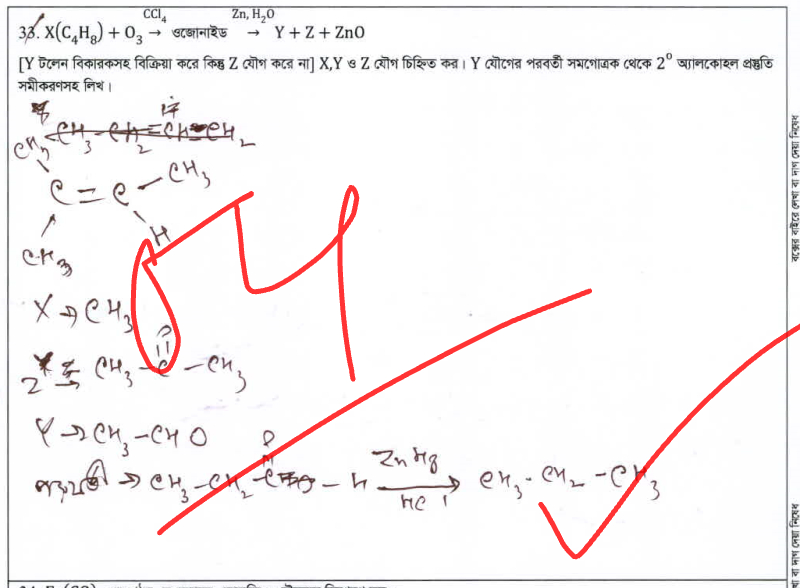 33. X(C₄H₈) + O₃ →(CCl₄) ওজোনাইড →(Zn, H₂O) Y + Z + ZnO
[Y টলেন বিকারকসহ বিক্রিয়া করে কিন্তু Z যৌগ করে না] X,Y ও Z যৌগ চিহ্নিত কর। Y যৌগের পরবর্তী সমগোত্রক থেকে 2° অ্যালকোহল প্রস্তুতি
সমীকরণসহ লিখ।
CH₃-CH₂-CH=CH₂
CH₃
C = C - CH₃
H
CH₃
X → CH₃
O
Z → CH₃ - C - CH₃
Y → CH₃ - CHO
O
পরবর্তী → CH₃ - CH₂ - C - H →(ZnHg, HCl) CH₃ - CH₂ - CH₃
বক্সের বাইরে লেখা বা দাগ দেয়া নিষেধ